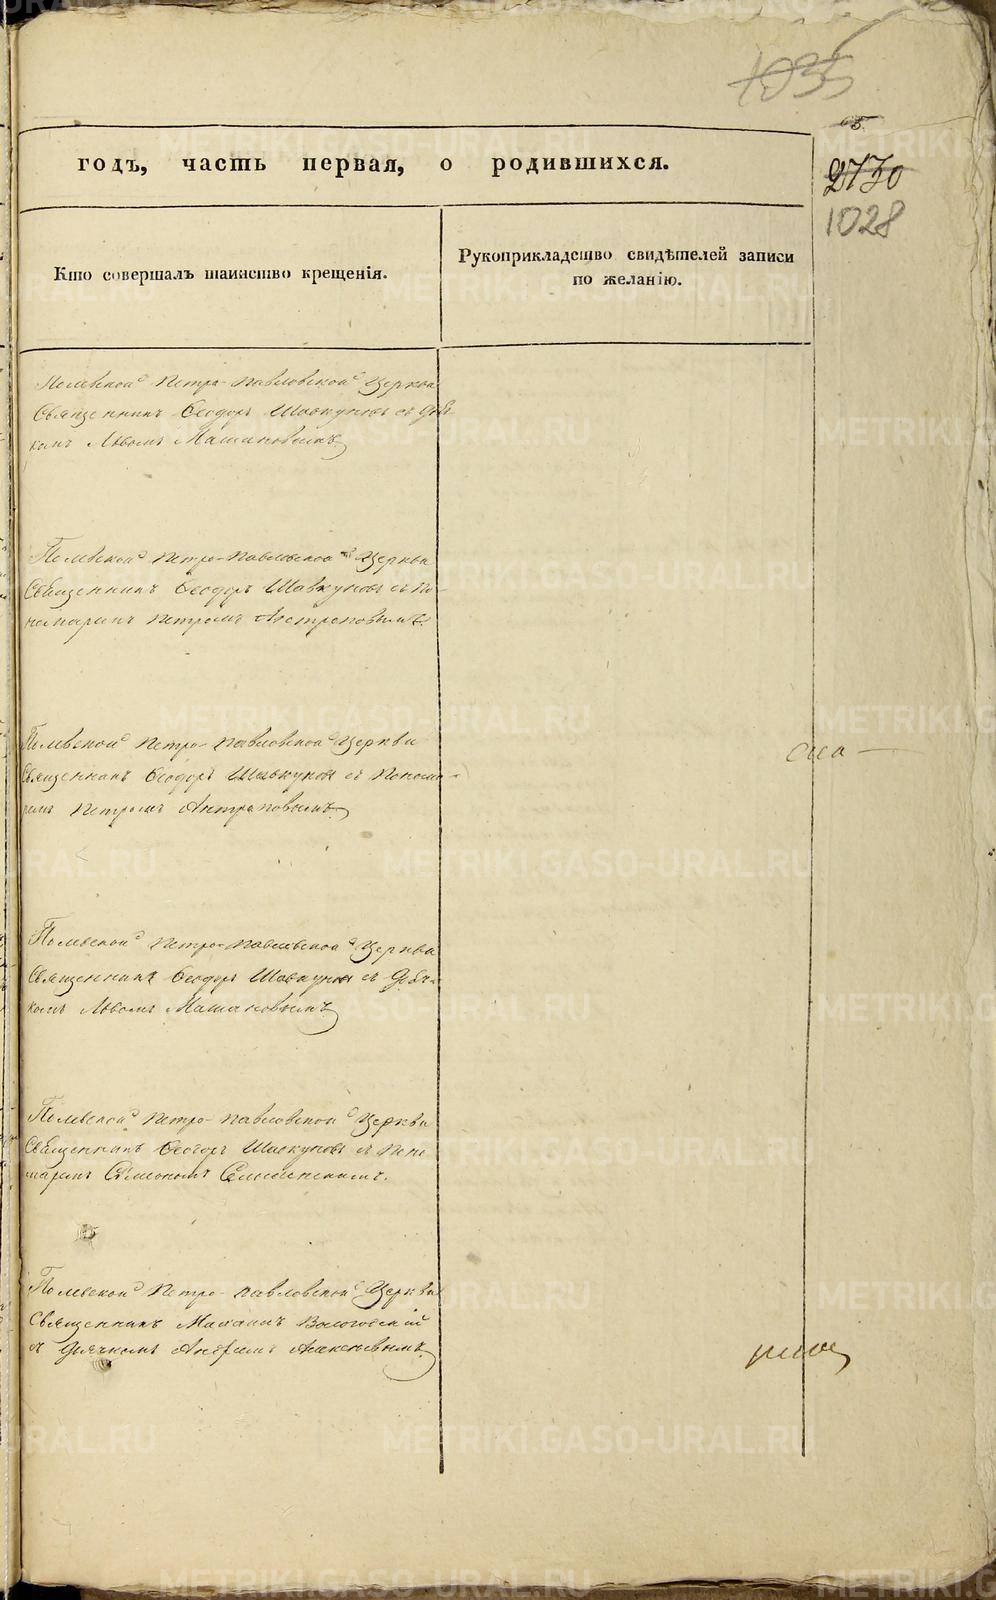 1035
годъ, часть первая, о родившихся.
2730
1028
Кто совершалъ таинство крещенія.
Рукоприкладство свидѣтелей записи
по желанію.
Полевской Петро-Павловской Церкви
Священникъ Ѳеодоръ Шавкуновъ съ Дьяч-
комъ Львомъ Машановымъ
Полевской Петро-Павловской Церкви
Священникъ Ѳеодоръ Шавкуновъ съ По-
номаремъ Петромъ Антроповымъ.
Полевской Петро-Павловской Церкви
Священникъ Ѳеодоръ Шавкуновъ съ Понома-
ремъ Петромъ Антроповымъ.
Полевской Петро-Павловской Церкви
Священникъ Ѳеодоръ Шавкуновъ съ Дьяч-
комъ Львомъ Машановымъ.
Полевской Петро-Павловской Церкви
Священникъ Ѳеодоръ Шавкуновъ съ Поно-
маремъ Симеономъ
Полевской Петро-Павловской Церкви
Священникъ Вологодский
съ Дьячкомъ Андреемъ Алексѣевымъ.
METRIKI.GASO-URAL.RU